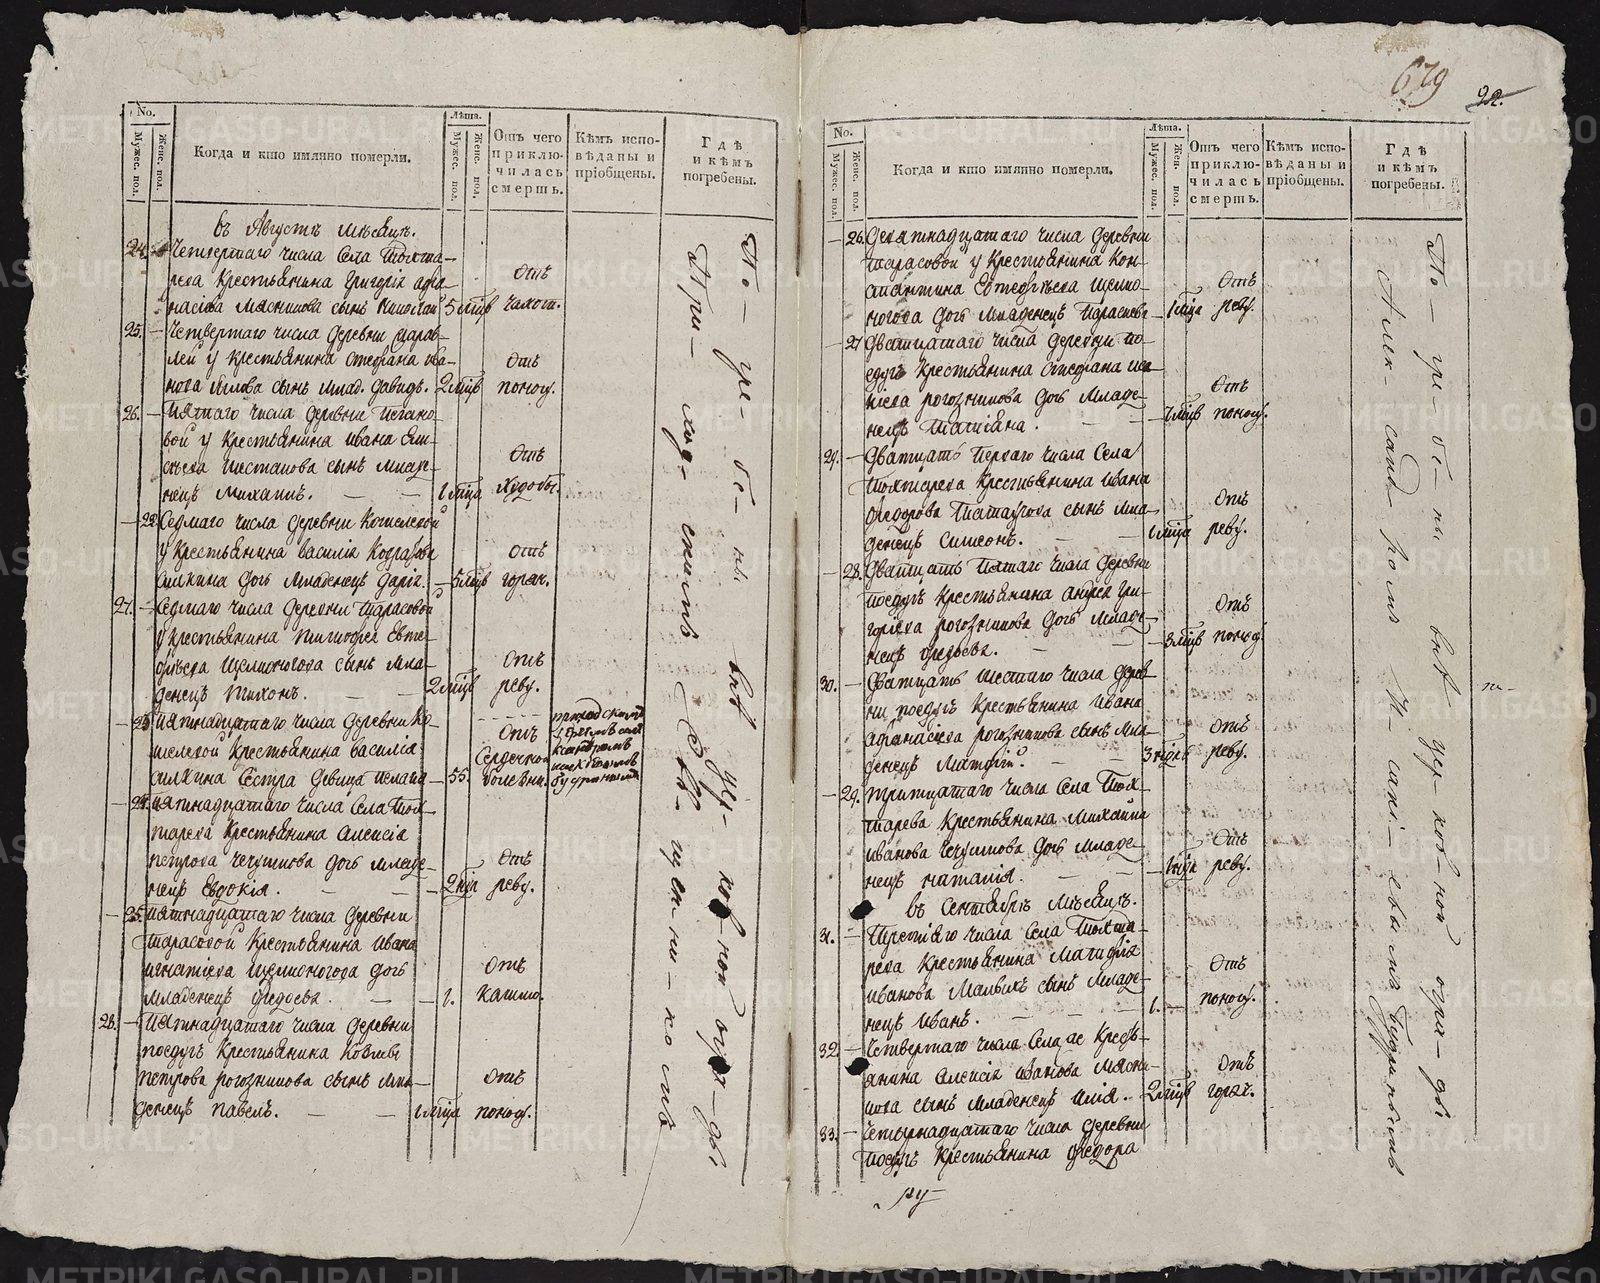 679
22.
No.
Мужес. пол.
Женс. пол.
Когда и кто имянно померли.
Лѣта.
Мужес. пол.
Женс. пол.
Отъ чего приклю-чилась смерть.
Кѣмъ испо-вѣданы и пріобщены.
Гдѣ и кѣмъ погребены.
въ Августѣ мѣсяцѣ.
24. Четвертаго числа Села Тохта-
рева Крестьянина Григорія Афа-
насіева Мясникова сынъ
5 мцъ
Отъ
чахот.
25. Четвертаго числа деревни
у Крестьянина Стефана Ива-
нова сынъ млад. Давидъ.
2 мцъ
Отъ
поносу.
26. Пятаго числа деревни
вой у Крестьянина Ивана
Шестакова сынъ младе-
нецъ Михаилъ.
1 мца
Отъ
худобы.
22. Седмаго числа деревни Кошелевой
у Крестьянина Василія
Аликина дочь Младенецъ Дарія.
5 мцъ
Отъ
горяч.
27. Седмаго числа деревни Тарасовой
у Крестьянина Тимофея Евти-
фѣева Щелконогова сынъ мла-
денецъ Тихонъ.
2 мцъ
Отъ
реву.
23. Пятнадцатаго числа деревни Ко-
шелевой Крестьянина Василія
Аликина Сестра девица
55.
Отъ
Сердечной
болезни.
24. Пятнадцатаго числа Села Тох-
тарева Крестьянина Алексія
Петрова Чечушкова дочь младе-
нецъ Евдокія.
2 нди
Отъ
реву.
25. Пятнадцатаго числа деревни
Тарасовой Крестьянина Ивана
Игнатіева Щелконогова дочь
младенецъ Федосья.
1.
Отъ
кашлю.
28. Пятнадцатаго числа деревни
поедугъ Крестьянина Козмы
Петрова Рогозникова сынъ мла-
денецъ Павелъ.
1 мца
Отъ
поносу.
По-гре-бе-ны внѣ цер-ков-ной огра-ды
При-ход-скимъ Свя-щен-ни-комъ
No.
Мужес. пол.
Женс. пол.
Когда и кто имянно померли.
Лѣта.
Мужес. пол.
Жен. пол.
Отъ чего приклю-чилась смерть.
Кѣмъ испо-вѣданы и пріобщены.
Гдѣ и кѣмъ погребены.
26. Девятнадцатаго числа деревни
Тарасовой у Крестьянина Кон-
стантина Евтифѣева Щелко-
ногова дочь Младенецъ Парасковья
1 мца
Отъ
реву.
27. Дватцатаго числа деревни по-
едугъ Крестьянина Стефана
Рогозникова дочь Младе-
нецъ Татіяна.
7 мцъ
Отъ
поносу.
29. Дватцать Перваго числа Села
Тохтарева Крестьянина Ивана
Федорова Татаурова сынъ мла-
денецъ Симеонъ.
1 мца
Отъ
реву.
28. Дватцать Пятаго числа деревни
поедугъ Крестьянина Андрея Гри-
горіева Рогозникова дочь младе-
нецъ Федосья.
3 мцъ
Отъ
поносу
30. Дватцать шестаго числа дерев-
ни поедугъ Крестьянина Ивана
Афанасіева Рогозникова сынъ мла-
денецъ Матфій.
3 ндль
Отъ
реву.
29. Тритцатаго числа Села Тох-
тарева Крестьянина Михаила
Иванова Чечушкова дочь младе-
нецъ Наталія.
1 нди
Отъ
реву.
въ Сентябрѣ мѣсяцѣ.
31. Третіяго числа Села Тохта-
рева Крестьянина
Иванова Малыхъ сынъ Младе-
нецъ Иванъ.
1.
Отъ
поносу.
32. Четвертаго числа Села ес Кресть-
янина Алексія Иванова Мясни-
кова сынъ младенецъ Илія.
2 мцъ
Отъ
горяч.
33. Четырнадцатаго числа деревни
Поедугъ Крестьянина Федора
По-гре-бе-ны внѣ цер-ков-ной огра-ды
Алек-санд-ромъ И-сакі-евымъ Будринымъ
ру-